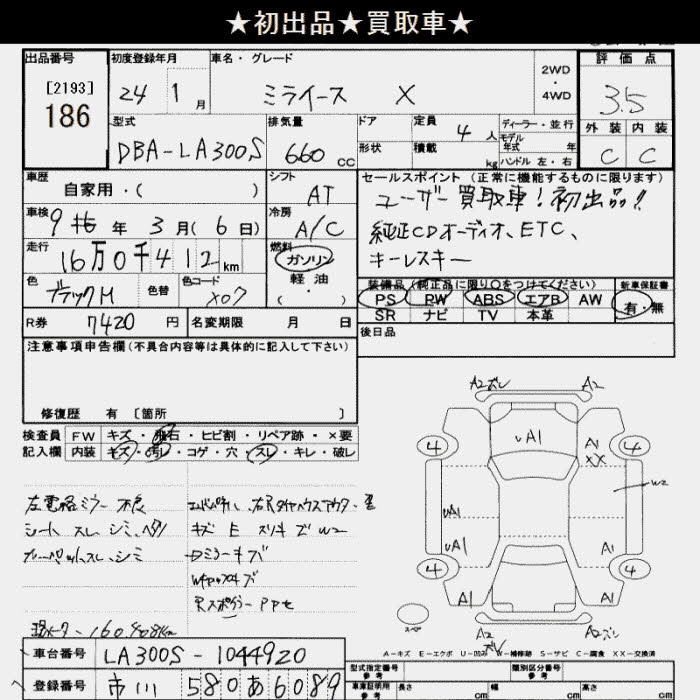 ★初出品★買取車★
出品番号
[2193]
186
初度登録年月
24 1 月
車名・グレード
ミライース X
2WD
・
4WD
評価点
3.5
外装 内装
C C
型式
DBA-LA300S
排気量
660 cc
ドア
形状
定員
4 人
積載
kg
ディーラー・並行
モデル
年式 年
ハンドル 左・右
車歴
自家用・( )
車検
9 年 3 月( 6 日)
走行
16万0千412 km
色
ブラックM
色替
色コード
X07
シフト
AT
冷房
A/C
燃料
ガソリン
軽油
・
( )
セールスポイント (正常に機能するものに限ります)
ユーザー買取車!初出品!!
純正CDオーディオ、ETC、
キーレスキー
装備品(純正品に限り○をつけてください)
PS PW ABS エアB AW
SR ナビ TV 本革
新車保証書
有・無
R券 7420 円
名変期限 月 日
後日品
注意事項申告欄(不具合内容等は具体的に記入して下さい)
修復歴 有 [箇所 ]
検査員
記入欄
FW キズ・飛石・ヒビ割・リペア跡・×要
内装 キズ・汚レ・コゲ・穴・スレ・キレ・破レ
左電格ミラー不良
シート スレ、シミ、ヘタリ
カーペットスレ、シミ
160408km
車台番号 LA300S-1044920
登録番号 市川 580 あ 6089
A2 A2
uA1
A1
XX
4 4
W2
uA1
uA1 A1
4 4
A1 A1
スペア
A2 A2
A-キズ E-エクボ U-凹み W-補修跡 S-サビ C-腐食 XX-交換済
型式指定番号
参考
類別区分番号
参考
車庫証明用
参考
長さ cm
幅 cm
高さ cm